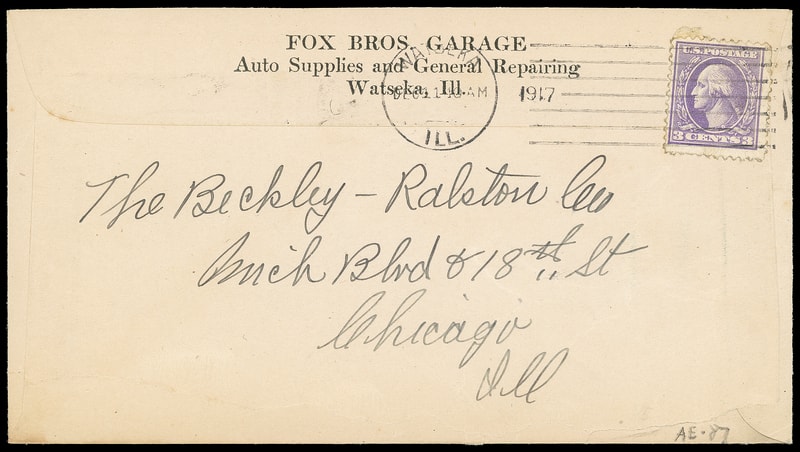 FOX BROS. GARAGE
Auto Supplies and General Repairing
Watseka, Ill.
WATSEKA
DEC 11 AM
1917
ILL.
U.S. POSTAGE
3 CENTS 3
The Beckley - Ralston Co
Mich Blvd & 18th St
Chicago
Ill
AE-87